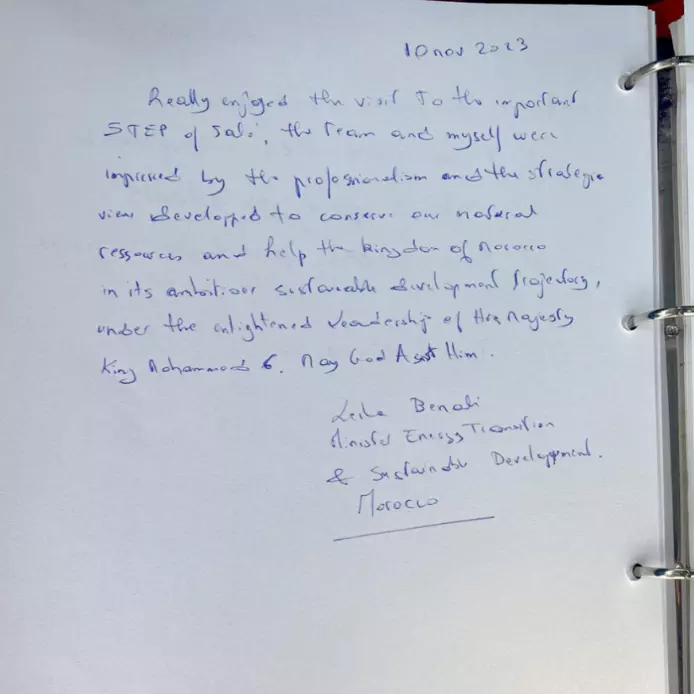 10 nov 2023
Really enjoyed the visit to the important
STEP of Safi, the team and myself were
impressed by the professionalism and the strategic
view developped to conserve our natural
ressources and help the kingdom of Morocco
in its ambitious sustainable development trajectory,
under the enlightened leadership of His Majesty
King Mohammed 6. May God Assist Him.
Leila Benali
Minister Energy Transition
& Sustainable Development.
Morocco